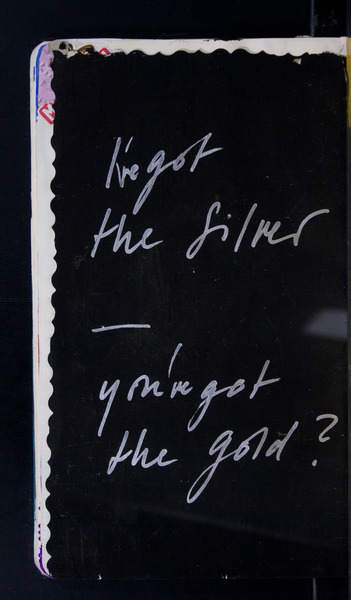 I've got
the silver
—
you've got
the gold?